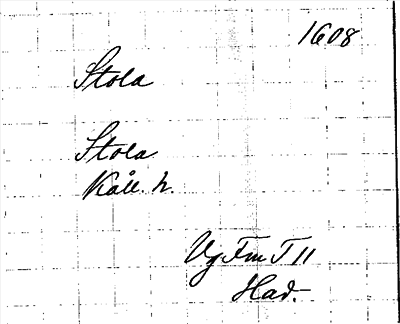 1608
Stola
Stola
Kåll. h.
VgFmT 11
Had.